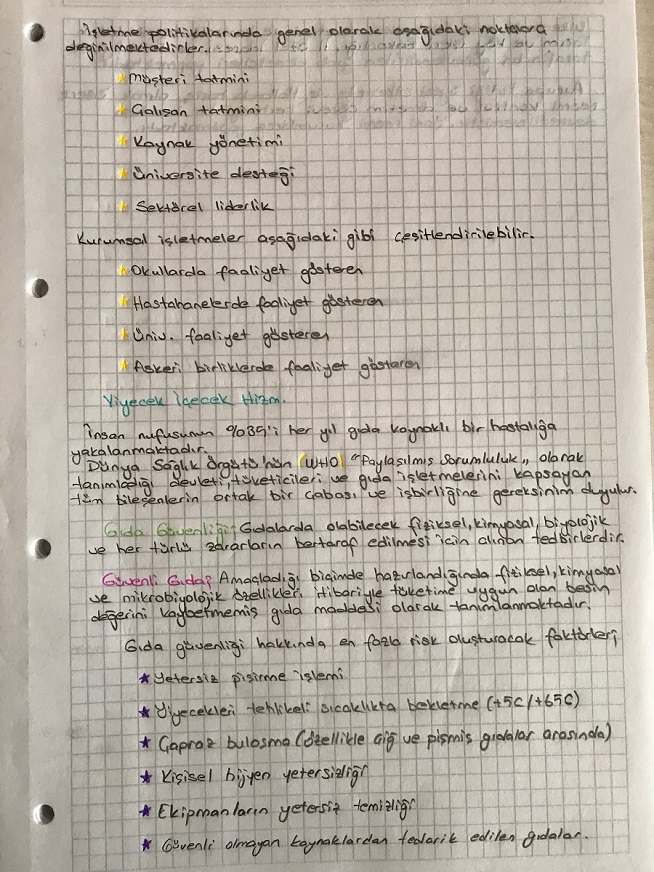 İşletme politikalarında genel olarak aşağıdaki noktalara
değinilmektedirler.
Müşteri tatmini
Çalışan tatmini
Kaynak yönetimi
Üniversite desteği
Sektörel liderlik
Kurumsal işletmeler aşağıdaki gibi çeşitlendirilebilir.
Okullarda faaliyet gösteren
Hastahanelerde faaliyet gösteren
Üniv. faaliyet gösteren
Askeri birliklerde faaliyet gösteren
Yiyecek İçecek Hizm.
İnsan nufusunun %035'i her yıl gıda kaynaklı bir hastalığa
yakalanmaktadır.
Dünya Sağlık Örgütü'nün (WHO) "Paylaşılmış Sorumluluk" olarak
tanımladığı devleti, tüketicileri ve gıda işletmelerini kapsayan
tüm bileşenlerin ortak bir çabası ve işbirliğine gereksinim duyulur.
Gıda Güvenliği; Gıdalarda olabilecek fiziksel, kimyasal, biyolojik
ve her türlü zararların bertaraf edilmesi için alınan tedbirlerdir.
Güvenli Gıda; Amaçladığı biçimde hazırlandığında fiziksel, kimyasal
ve mikrobiyolojik özellikleri itibariyle tüketime uygun olan besin
değerini kaybetmemiş gıda maddesi olarak tanımlanmaktadır.
Gıda güvenliği hakkında en fazla risk oluşturacak faktörler;
★ Yetersiz pişirme işlemi
★ Yiyecekleri tehlikeli sıcaklıkta bekletme (+5C/+65C)
★ Çapraz bulaşma (özellikle çiğ ve pişmiş gıdalar arasında)
★ Kişisel hijyen yetersizliği
★ Ekipmanların yetersiz temizliği
★ Güvenli olmayan kaynaklardan tedarik edilen gıdalar.